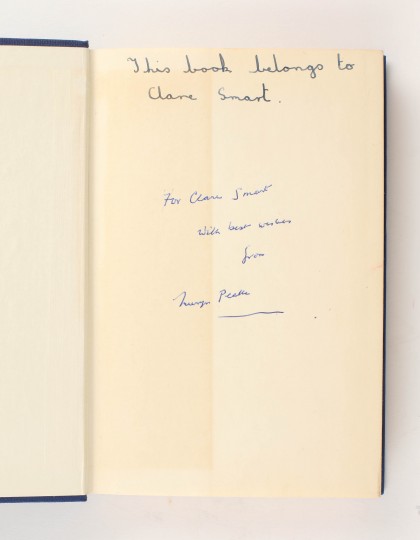 This book belongs to
Clare Smart.
For Clare Smart
With best wishes
from
Mervyn Peake